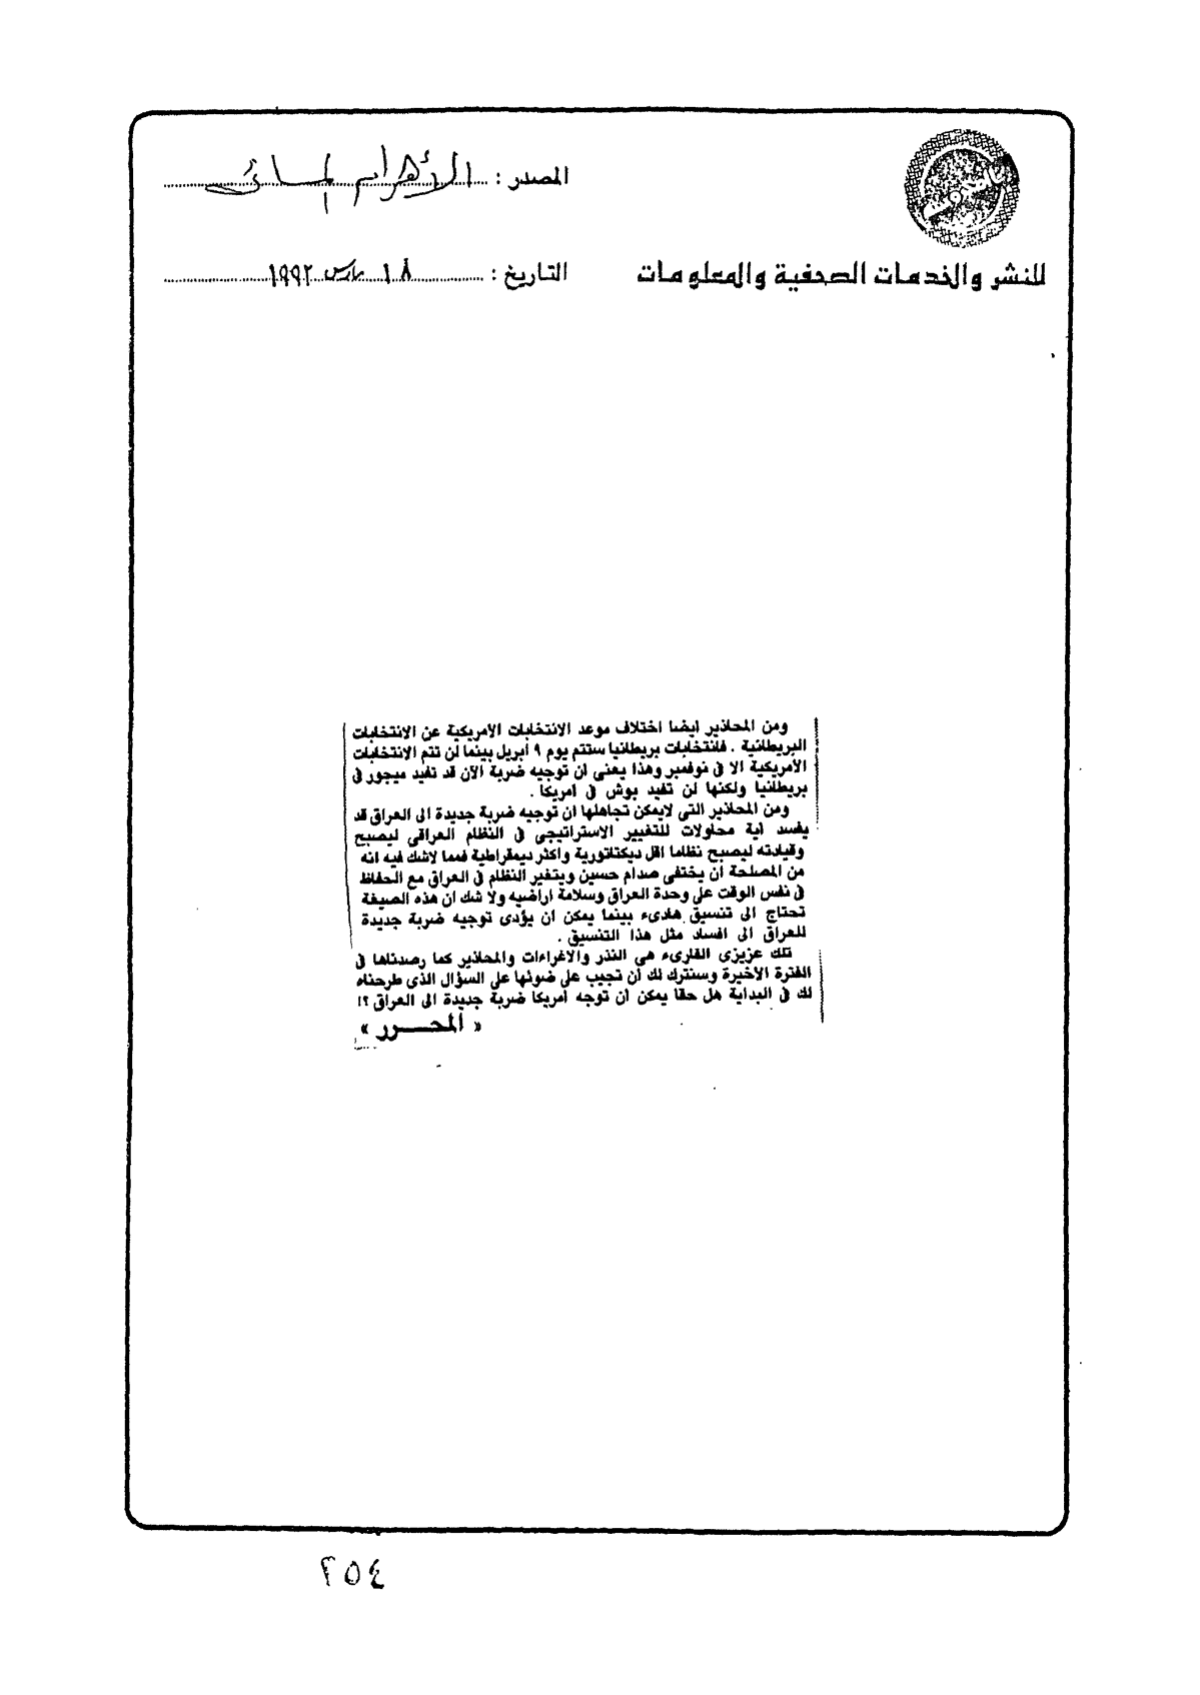 المصدر : الأهرام المسائى
للنشر والخدمات الصحفية والمعلومات
التاريخ : ١٨ مارس ١٩٩٢
ومن المحاذير ايضا اختلاف موعد الانتخابات الأمريكية عن الانتخابات
البريطانية . فانتخابات بريطانيا ستتم يوم ٩ أبريل بينما لن تتم الانتخابات
الأمريكية الا فى نوفمبر وهذا يعنى ان توجيه ضربة الآن قد تفيد ميجور فى
بريطانيا ولكنها لن تفيد بوش فى امريكا .
ومن المحاذير التى لايمكن تجاهلها ان توجيه ضربة جديدة الى العراق قد
يفسد اية محاولات للتغيير الاستراتيجى فى النظام العراقى ليصبح
وقيادته ليصبح نظاما اقل ديكتاتورية واكثر ديمقراطية فمما لاشك فيه انه
من المصلحة ان يختفى صدام حسين ويتغير النظام فى العراق مع الحفاظ
فى نفس الوقت على وحدة العراق وسلامة اراضيه ولا شك ان هذه الصيغة
تحتاج الى تنسيق هادىء بينما يمكن ان يؤدى توجيه ضربة جديدة
للعراق الى افساد مثل هذا التنسيق .
تلك عزيزى القارىء هى النذر والاغراءات والمحاذير كما رصدناها فى
الفترة الأخيرة وسنترك لك أن تجيب على ضوئها على السؤال الذى طرحناه
لك فى البداية هل حقا يمكن ان توجه أمريكا ضربة جديدة الى العراق ؟!
« المحـــرر »
٢٥٤